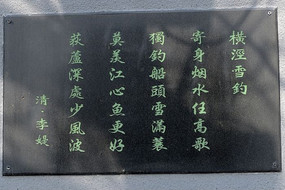 橫涇雪釣
寄身烟水任高歌
獨釣船頭雪滿蓑
莫羨江心魚更好
荻蘆深處少風波
清 李媞